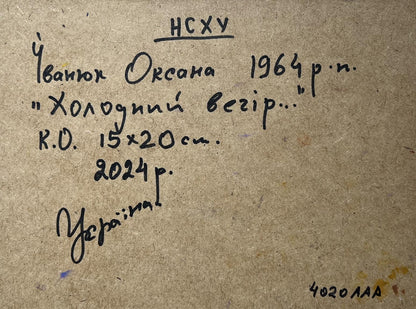 НСХУ
Іванюк Оксана 1964 р.н.
"Холодний вечір..."
К.О. 15х20 см.
2024 р.
Україна
4020ЛАА